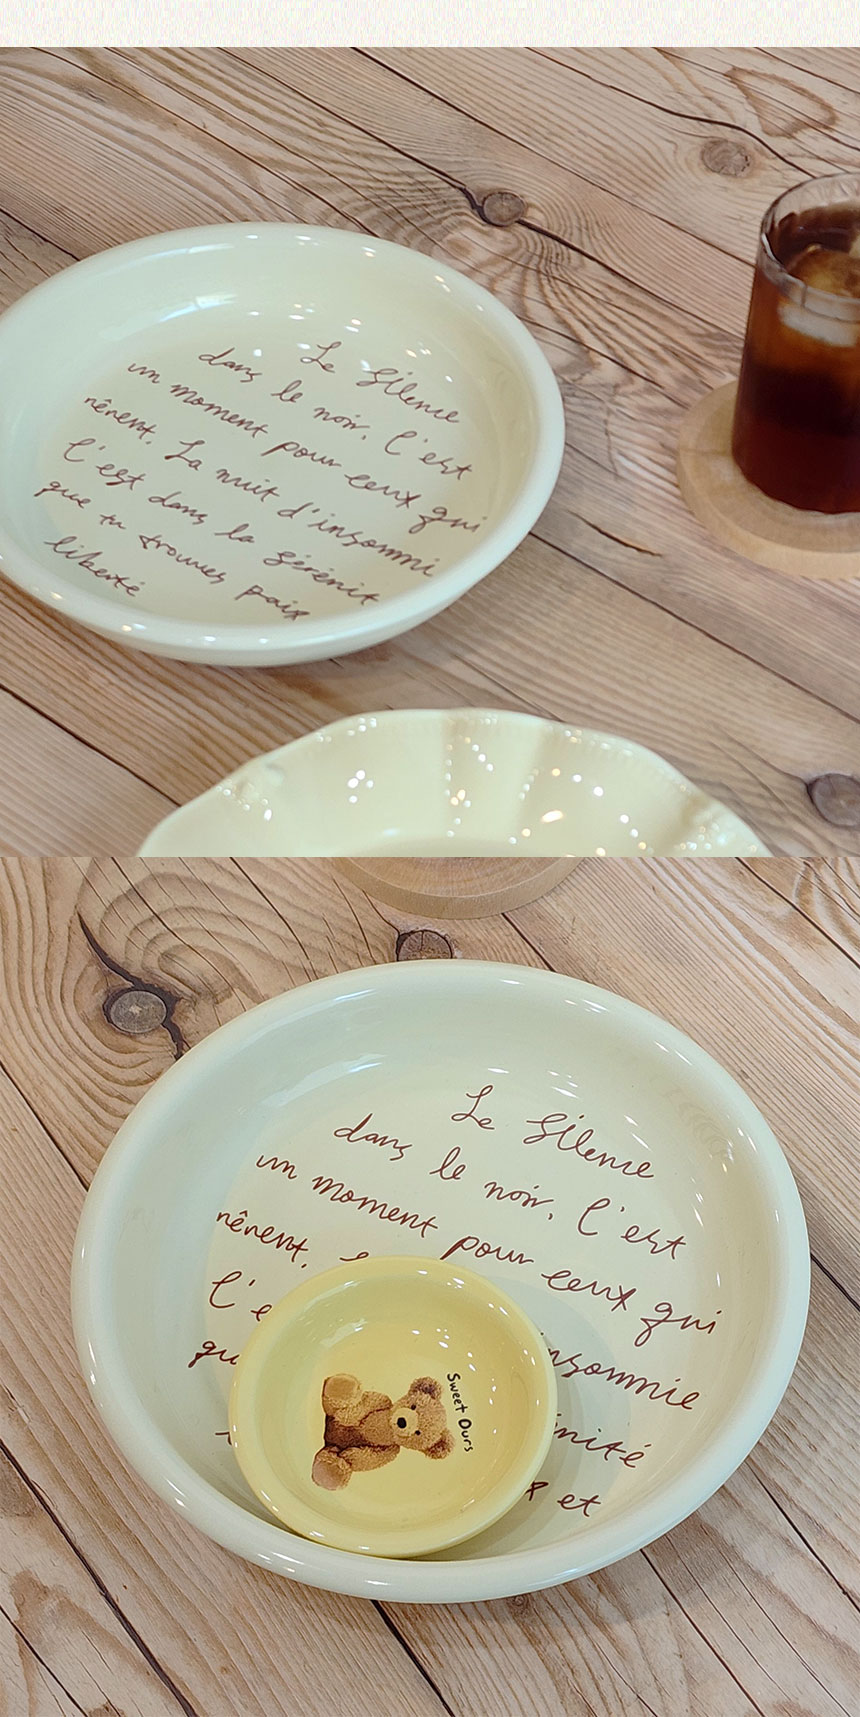 Le Silence
dans le noir. C'est
un moment pour ceux qui
rêvent. La nuit d'insomni
C'est dans la sérénit
que tu trouves paix
liberté
Le Silence
dans le noir. C'est
un moment pour ceux qui
rêvent. insomnie
C'e nité
qu et
Sweet Ours